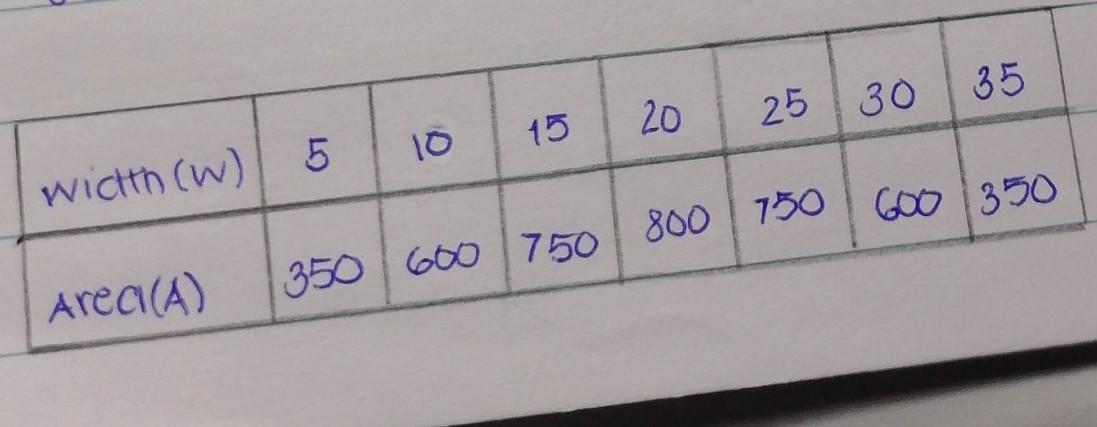 Width (W) 5 10 15 20 25 30 35
Area (A) 350 600 750 800 750 600 350